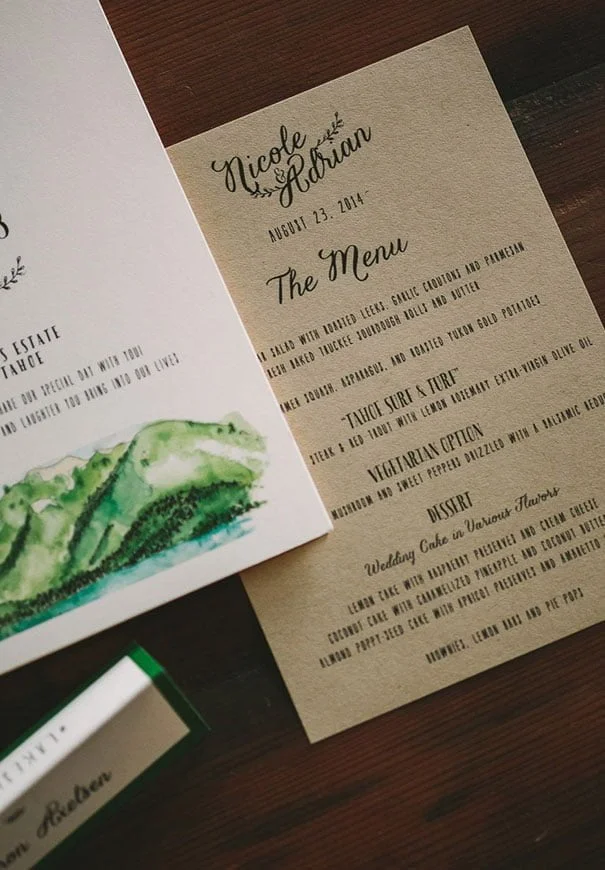 Nicole
&
Adrian
AUGUST 23, 2014
The Menu
SALAD WITH ROASTED LEEKS, GARLIC CROUTONS AND PARMESAN
FRESH BAKED TRUCKEE SOURDOUGH ROLLS AND BUTTER
SQUASH, ASPARAGUS, AND ROASTED YUKON GOLD POTATOES
"TAHOE SURF & TURF"
STEAK & RED-TROUT WITH LEMON ROSEMARY EXTRA-VIRGIN OLIVE OIL
VEGETARIAN OPTION
MUSHROOM AND SWEET PEPPERS DRIZZLED WITH A BALSAMIC
DESSERT
Wedding Cake in Various Flavors
LEMON CAKE WITH RASPBERRY PRESERVES AND CREAM CHEESE
COCONUT CAKE WITH CARAMELIZED PINEAPPLE AND COCONUT
ALMOND POPPY-SEED CAKE WITH APRICOT PRESERVES AND AMARETTO
BROWNIES, LEMON BARS AND PIE POPS
ESTATE
TAHOE
OUR SPECIAL DAY WITH YOU!
AND LAUGHTER YOU BRING INTO OUR LIVES
Axelsen